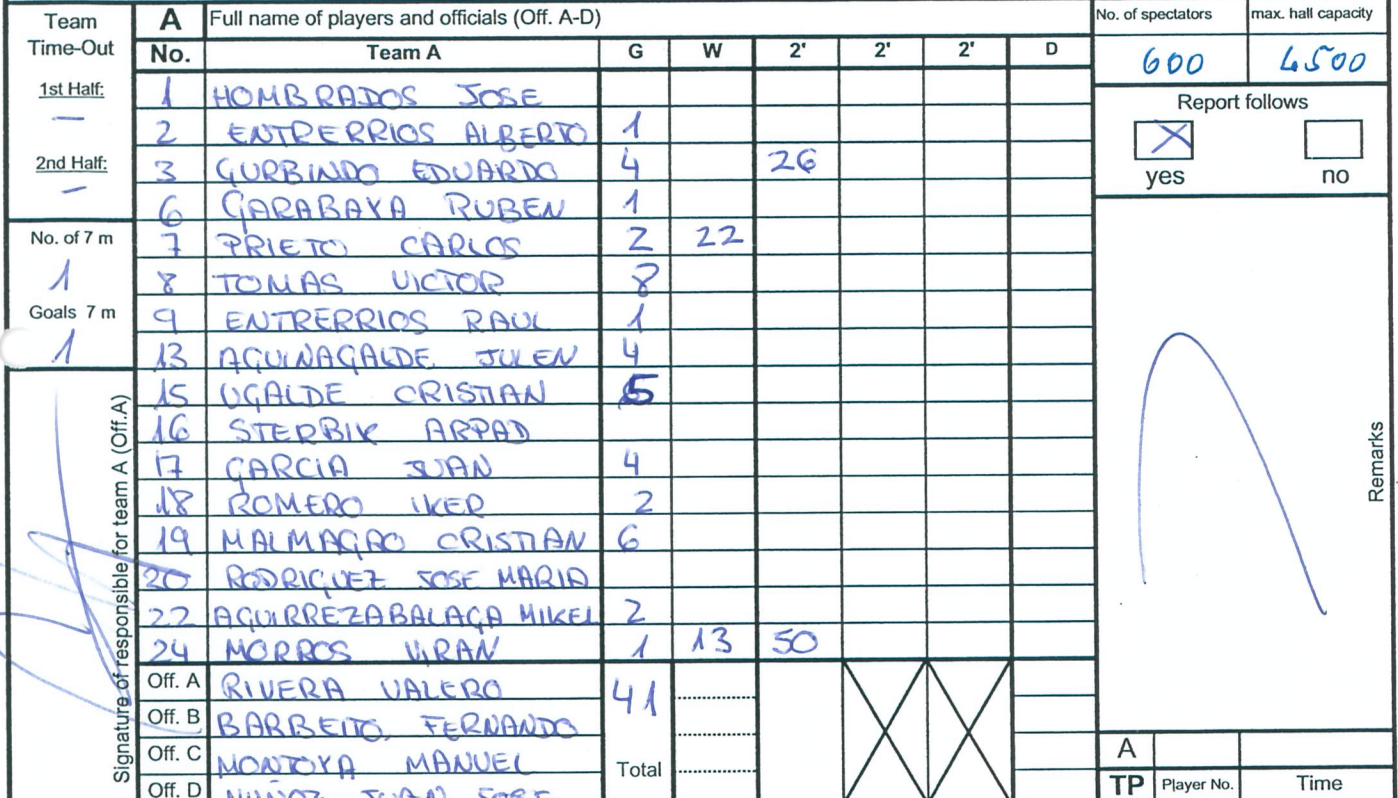 Team Time-Out
1st Half:
—
2nd Half:
—
No. of 7 m
1
Goals 7 m
1
Signature of responsible for team A (Off.A)
A Full name of players and officials (Off. A-D)
No. Team A G W 2' 2' 2' D
1 HOMBRADOS JOSE
2 ENTRERRIOS ALBERTO 1
3 GURBINDO EDUARDO 4 26
6 GARABAYA RUBEN 1
7 PRIETO CARLOS 2 22
8 TOMAS VICTOR 8
9 ENTRERRIOS RAUL 1
13 AGUINAGALDE JULEN 4
15 UGALDE CRISTIAN 5
16 STERBIK ARPAD
17 GARCIA JUAN 4
18 ROMERO IKER 2
19 MALMAGRO CRISTIAN 6
20 RODRIGUEZ JOSE MARIA
22 AGUIRREZABALAGA MIKEL 2
24 MORROS VIRAN 1 13 50
Off. A RIVERA VALERO 41
Off. B BARBEITO, FERNANDO
Off. C MONTOYA MANUEL Total
Off. D
No. of spectators max. hall capacity
600 4500
Report follows
X
yes no
Remarks
A
TP Player No. Time